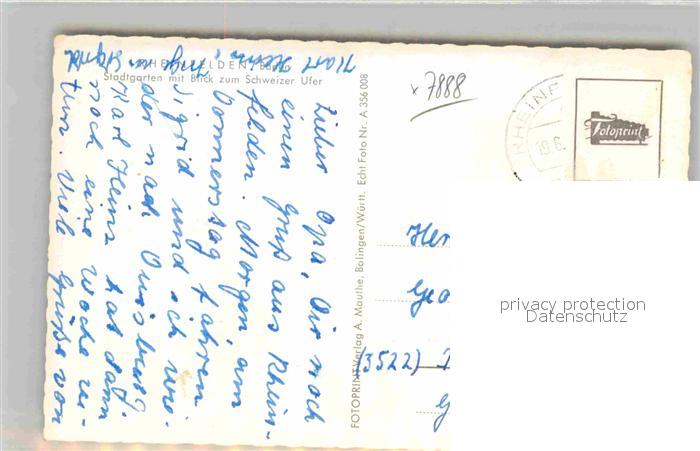 RHEINFELDEN / Baden
Stadtgarten mit Blick zum Schweizer Ufer
Lieber Opa, Dir noch
einen Gruß aus Rhein-
felden. Morgen, am
Donnerstag fahren
Sigrid und ich wie-
der nach Duisburg.
Karl Heinz hat dann
noch eine Woche ur-
Viele Grüße von
Karl Heinz
FOTOPRINT Verlag A. Mauthe, Balingen/Württ. Echt Foto Nr. A 356 008
x 7888
RHEINF
19.6.
Fotoprint
Her
Geo
(3522)
G
privacy protection
Datenschutz